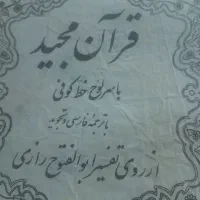 قرآن مجید
با سرلوح خط کوفی
با ترجمه فارسی و تجوید
از روی تفسیر ابوالفتوح رازی